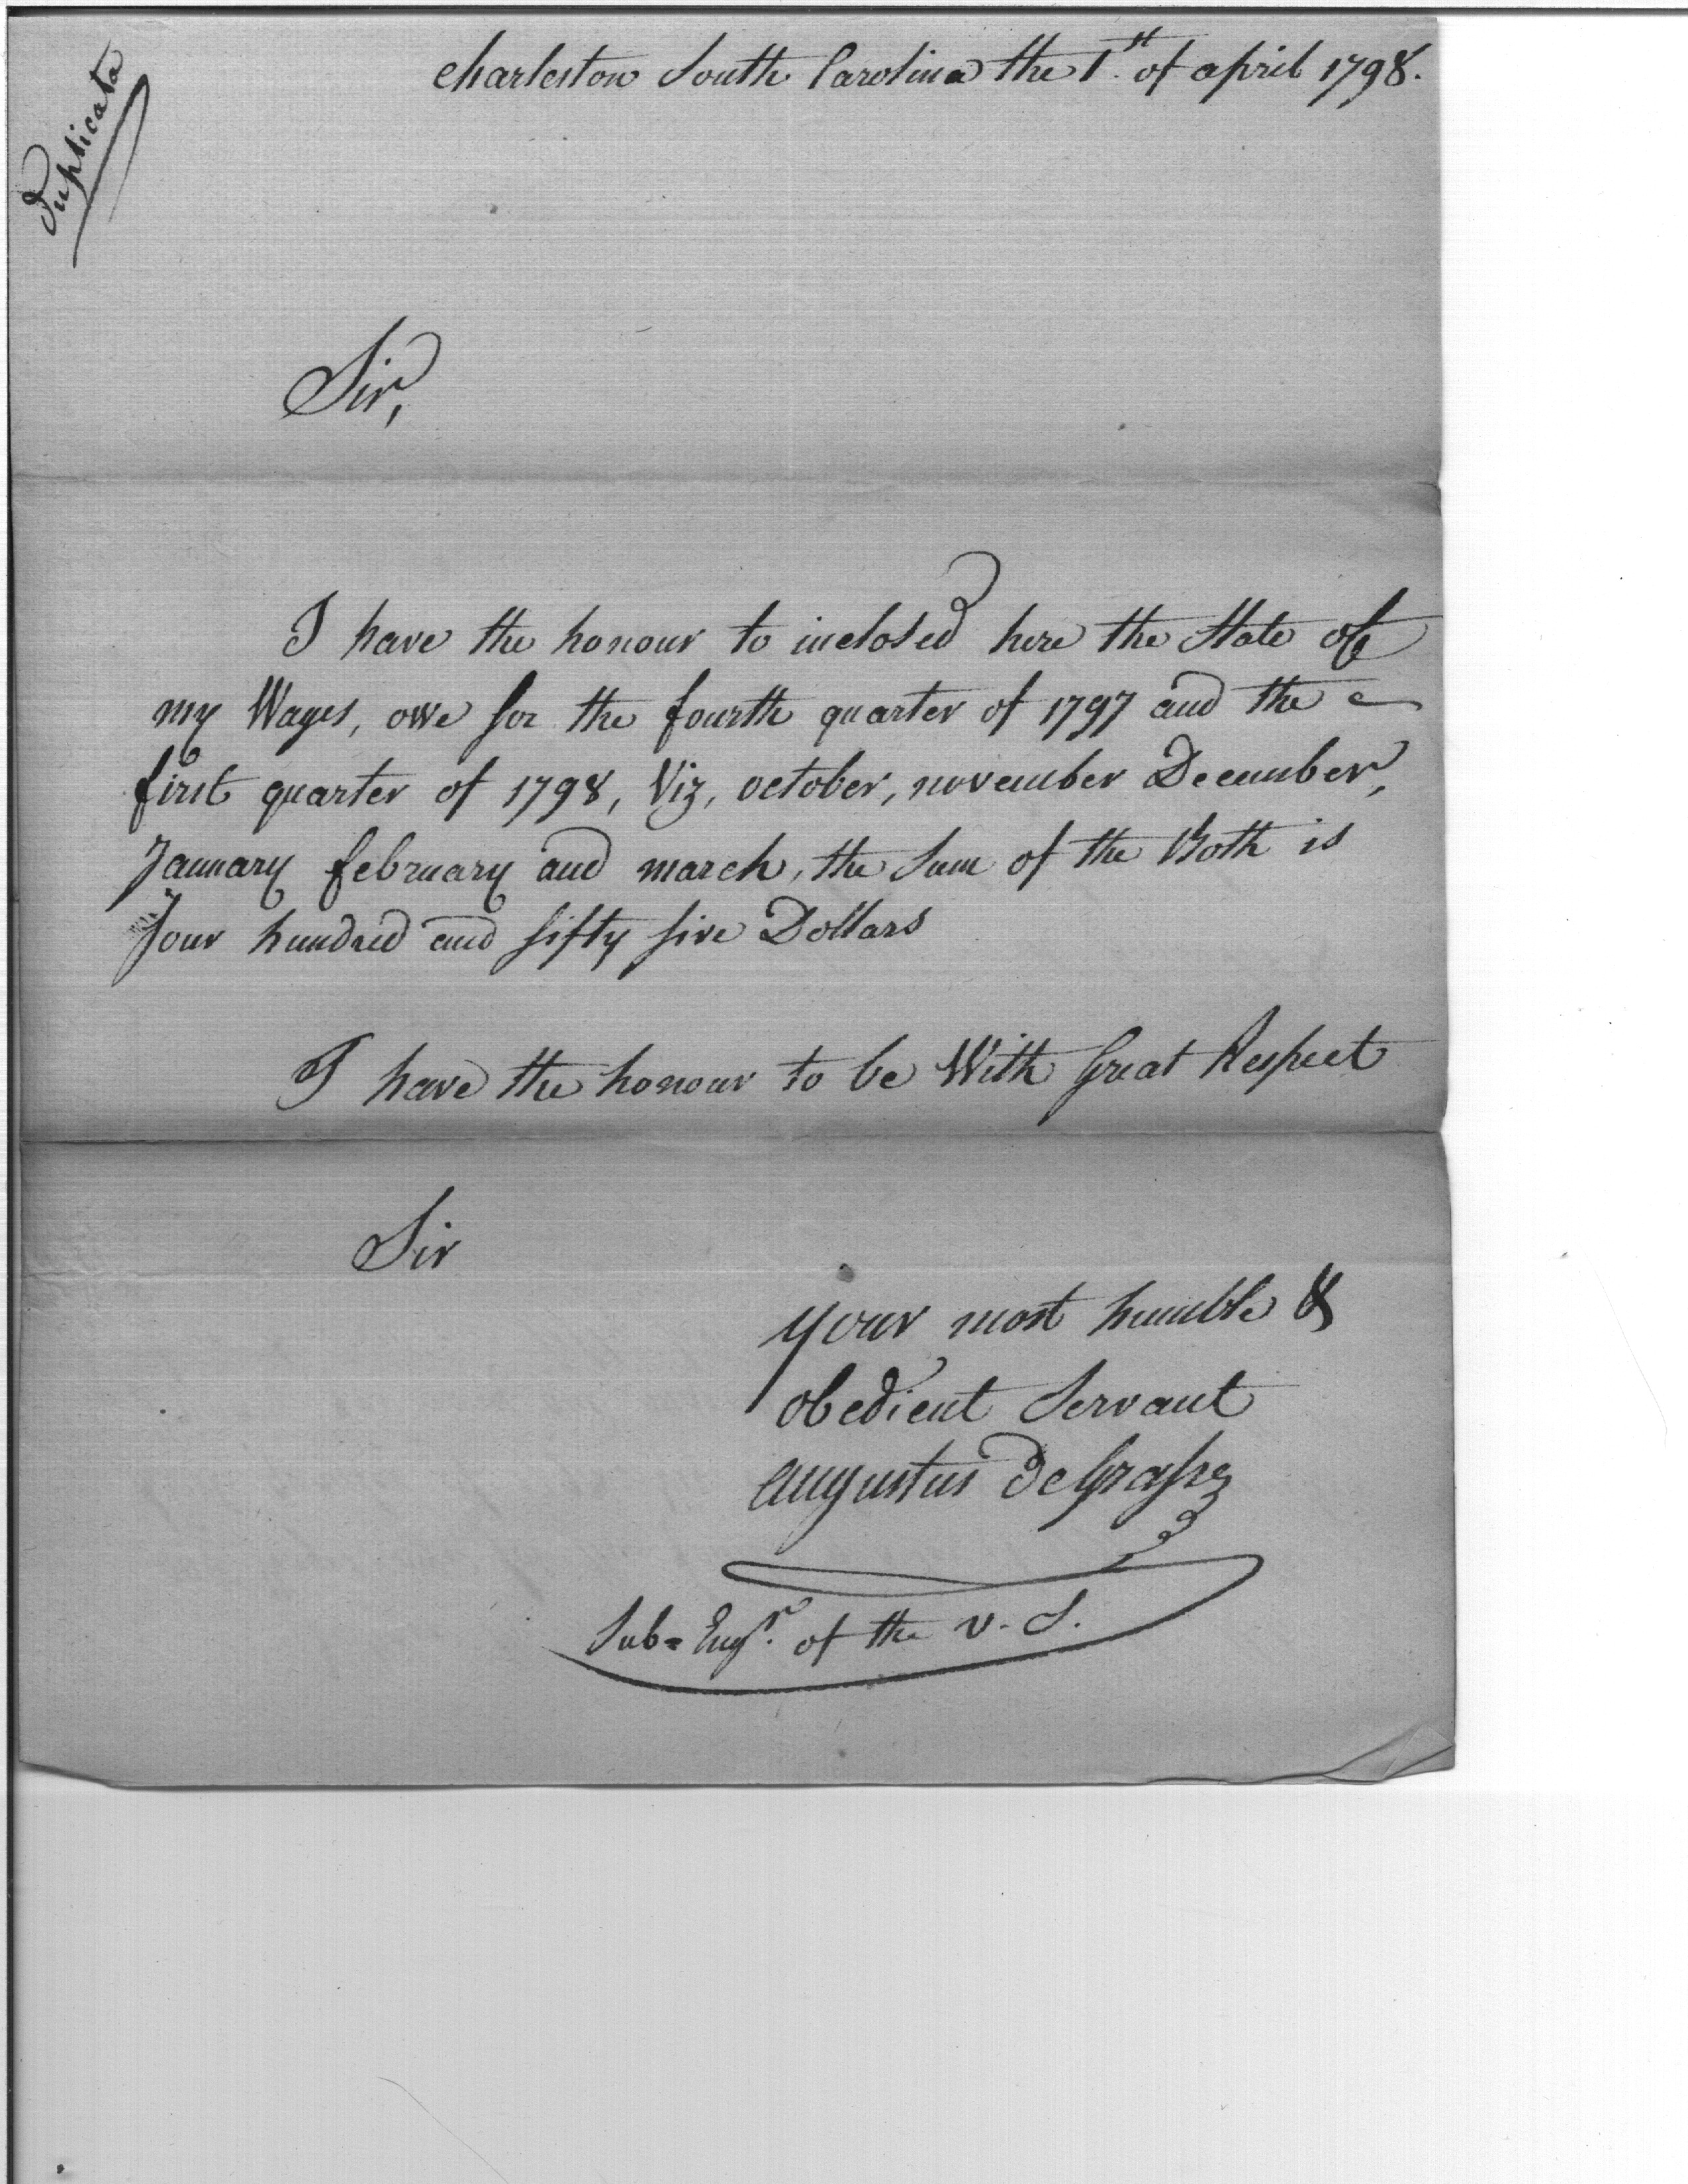 Duplicata
charleston South Carolina the 1.st of april 1798.
Sir,
I have the honour to inclosed here the State of
my Wages, owe for the fourth quarter of 1797 and the
first quarter of 1798, Viz, october, november December,
January february and march, the Sum of the Both is
four hundred and fifty five Dollars
I have the honour to be With Great Respect
Sir
your most humble &
obedient Servant
augustus DeGrasse
Sub=Engr. of the U.S.